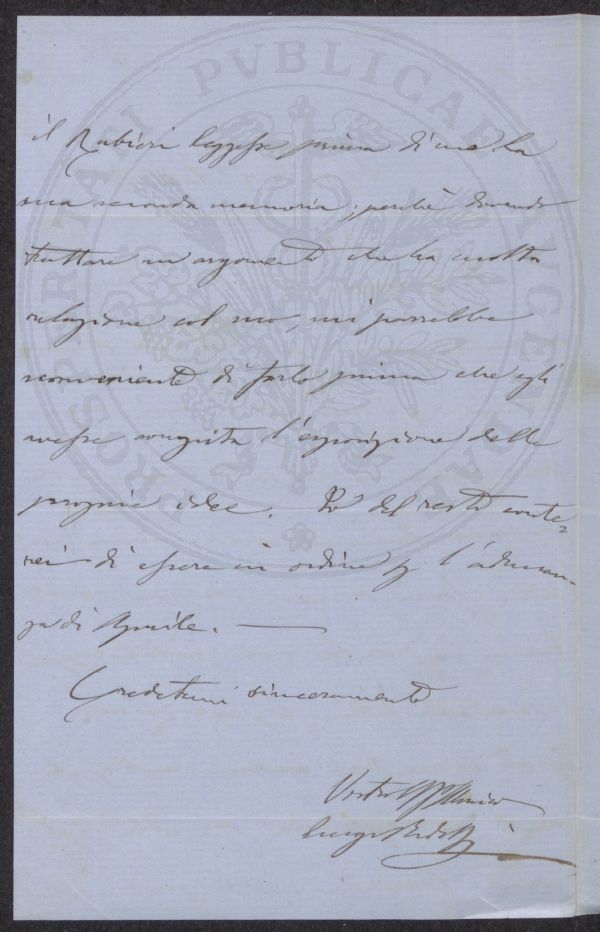 PROSPERITATI PVBLICAE AVGENDAE
il Rubieri leggesse prima di me la
sua seconda memoria; perchè dovendo
trattare un argomento che ha molta
relazione col suo, mi parrebbe
sconveniente di farlo prima che egli
avesse compita l'esposizione delle
proprie idee. Io del resto conte-
rei di essere in ordine p l'adunan-
za di Aprile. —
Credetemi sinceramente
Vostro Amico
Luigi Ridolfi